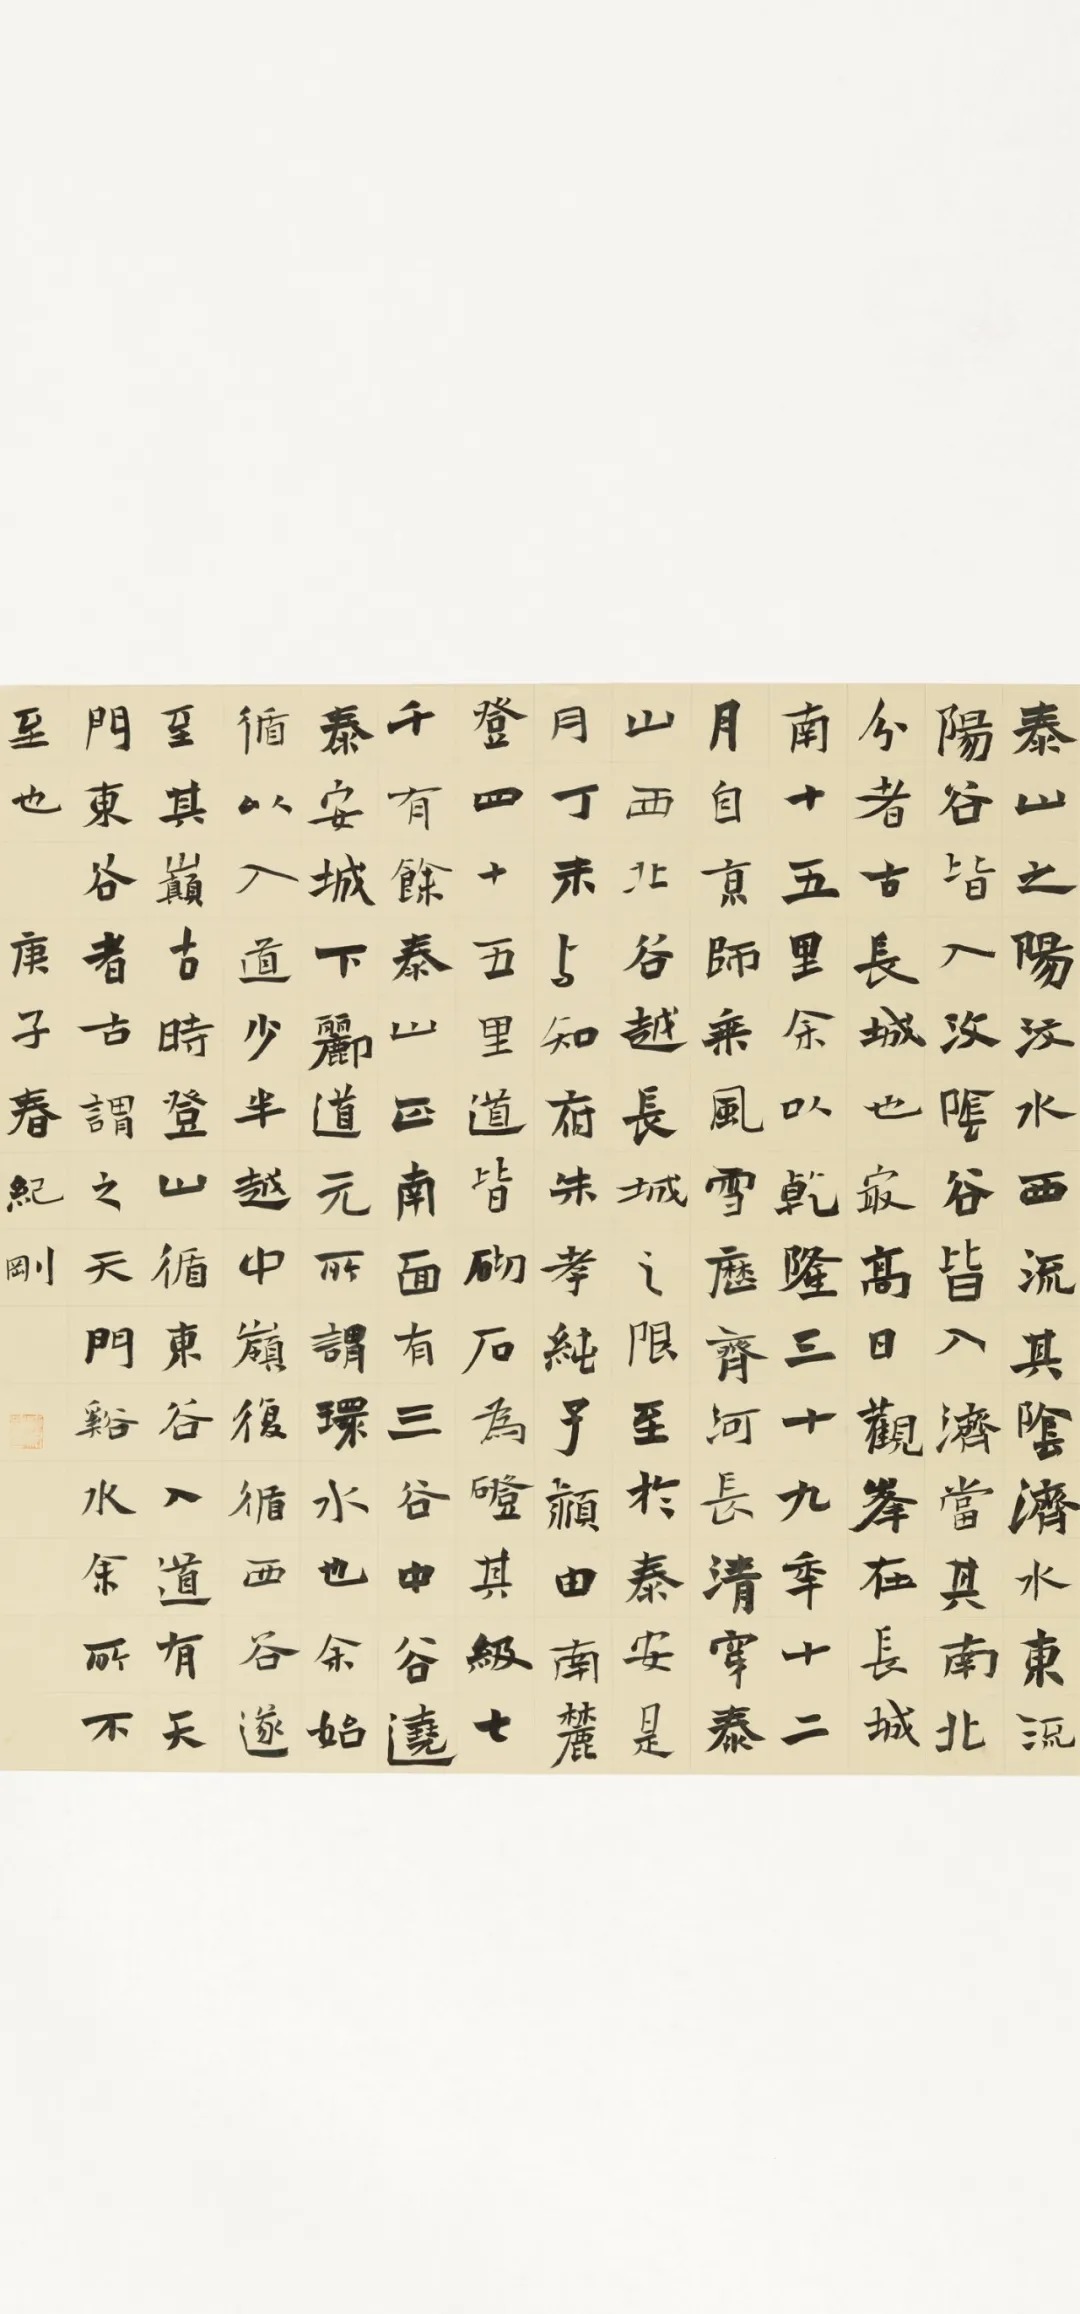 泰山之陽汶水西流其陰濟水東流
陽谷皆入汶陰谷皆入濟當其南北
分者古長城也最高日觀峯在長城
南十五里余以乾隆三十九年十二
月自京師乘風雪歷齊河長清穿泰
山西北谷越長城之限至於泰安是
月丁未与知府朱孝純子潁由南麓
登四十五里道皆砌石為磴其級七
千有餘泰山正南面有三谷中谷遶
泰安城下酈道元所謂環水也余始
循以入道少半越中嶺復循西谷遂
至其巔古時登山循東谷入道有天
門東谷者古謂之天門谿水余所不
至也 庚子春紀剛